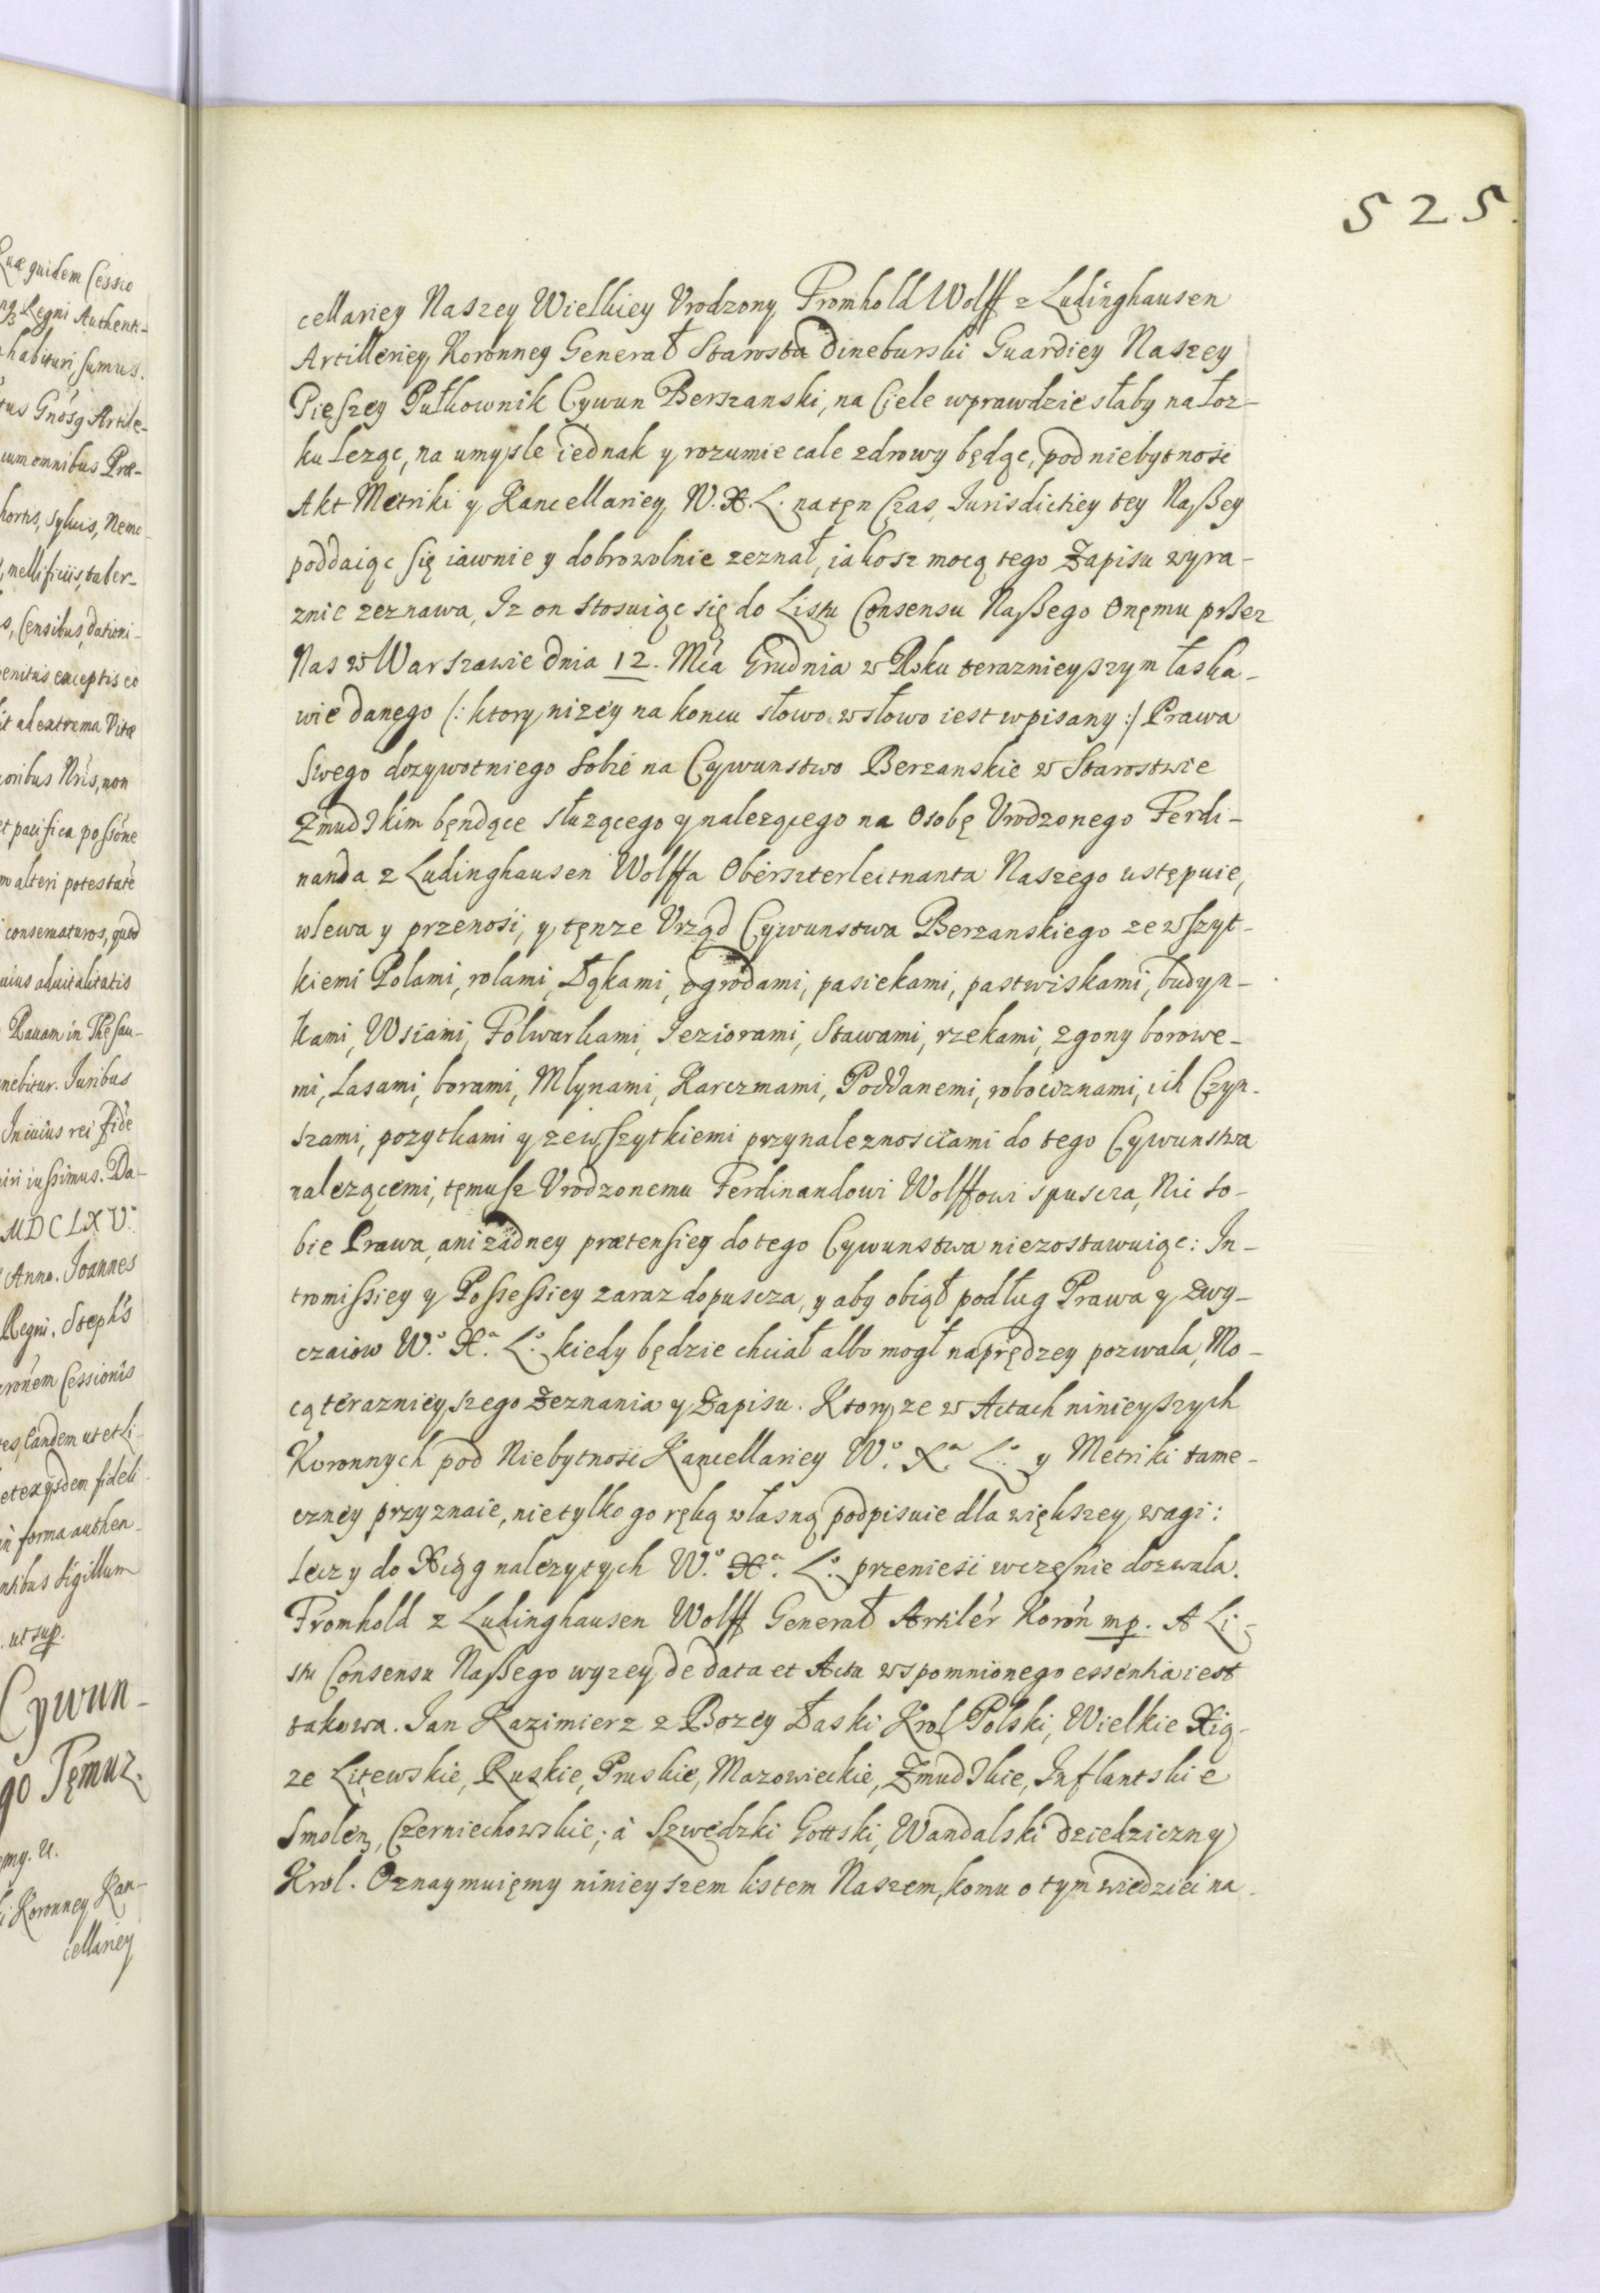 Quæ quidem Cessio
Regni Authenti-
habituri, sumus.
Gnősg Artile-
cum omnibus Præ-
hortis, sylvis, Neme-
mellificiis, taber-
s, Censibus, dationi-
penitus exceptis eo
it ad extrema Vitæ
ioribus Nřis, non
et pacifica possőne
mo alteri potestatě
consernaturos, quod
uius aduitalitatis
Rauam in Thesau-
nebitur. Juribus
In cuius rei fidě
iussimus. Da-
MDCLXV.
Anno. Joannes
Regni. Stephs
Cessionis
tandem ut et Li-
fideli
in forma authen-
sigillum
ut sup.
Cywun-
go Tęmuz.
my. U.
i Koronney Kan-
cellariey
525.
cellariey Naszey Wielkiey Vrodzony Fromhold Wolff z Ludinghausen
Artilleriey Koronney Generał Starosta dineburski Guardiey Naszey
Pieszey Pułkownik Cywun Berszanski, na Ciele wprawdzie słaby na łoz-
ku leząc, na umysle iednak y rozumie cale zdrowy będąc, pod niebytnośi
Akt Metriki y Kancellariey W. X. L. na tęn Czas, Iurisdictiey tey Naßey
poddaiąc się iawnie y dobrowolnie zeznał, iakosz mocą tego Zapisu wyra-
znie zeznawa, Iz on stosuiąc się do Listu Consensu Naßego Onęmu przez
Nas w Warszawie dnia 12. Mča Grudnia w Roku teraznieyszym łaska-
wie danego (: ktory nizey na koncu słowo w słowo iest wpisany :) Prawa
swego dozywotniego sobie na Cywunstwo Berzanskie w Starostwie
Zmudskim będące słuzącego y nalezącego na Osobę Vrodzonego Ferdi-
nanda z Ludinghausen Wolffa Oberszterleitnanta Naszego ustępuie,
wlewa y przenosi, y tęnze Vrząd Cywunstwa Berzanskiego ze wszyt-
kiemi Polami, rolami, Łąkami, ogrodami, pasiekami, pastwiskami, budyn-
kami, Wsiami, Folwarkami, Ieziorami, Stawami, rzekami, zgony borowe-
mi, Lasami, borami, Mlynami, Karczmami, Poddanemi, robociznami, ich Czyn-
szami, pozytkami y ze wszytkiemi przynaleznościami do tego Cywunstwa
nalezącemi, tęmusz Vrodzonemu Ferdinandowi Wolffowi spuscza, Nic so-
bie Prawa, ani zadney prætensiey do tego Cywunstwa niezostawuiąc: In-
tromissiey y Possessiey zaraz dopuscza, y aby obiął podług Prawa y Zwy-
czaiow Wº. Xª. Lº. kiedy będzie chciał albo mogł naprędzey pozwala, Mo-
cą teraznieyszego Zeznania y Zapisu. Ktory ze w Actach ninieyszych
Koronnych pod Niebytnośi Kancellariey Wº. Xª. Lº. y Metriki tame-
czney przyznaie, nie tylko go ręką własną podpisuie dla większey wagi:
lecz y do Xiąg nalezytych Wº. Xª. Lº. przeniesi wczęśnie dozwala.
Fromhold z Ludinghausen Wolff Generał Artilěr Koroń mp. A Li-
stu Consensu Naßego wyzey de data et Actu wspomnionego essentia iest
takowa. Ian Kazimierz z Bozey Łaski Krol Polski, Wielkie Xią-
ze Litewskie, Ruskie, Pruskie, Mazowieckie, Zmudskie, Inflantskie
Smolen, Czerniechowskie; à Szwędzki Gottski, Wandalski dziedziczny
Krol. Oznaymuięmy ninieyszem listem Naszem, komu o tym wiedziei na-